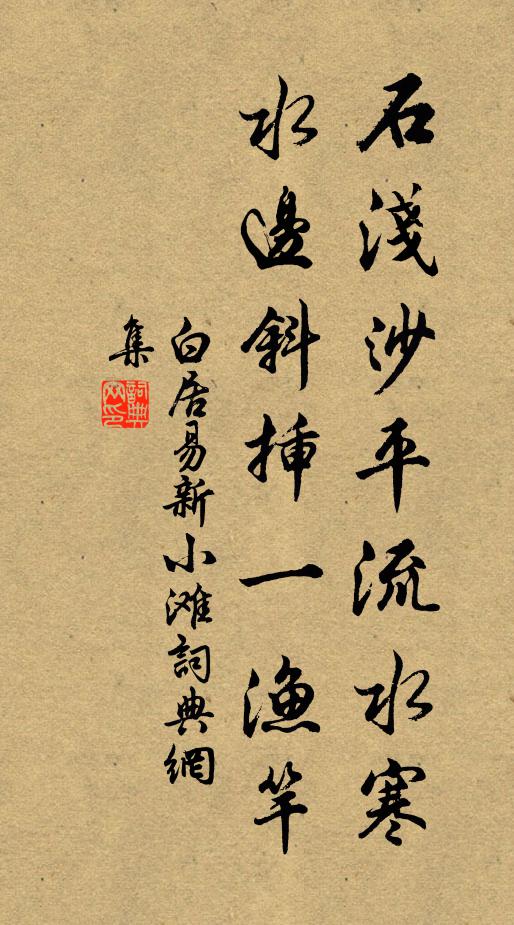 石淺沙平流水寒
水邊斜插一漁竿
白居易新小滩詞典網
集
詞典網印